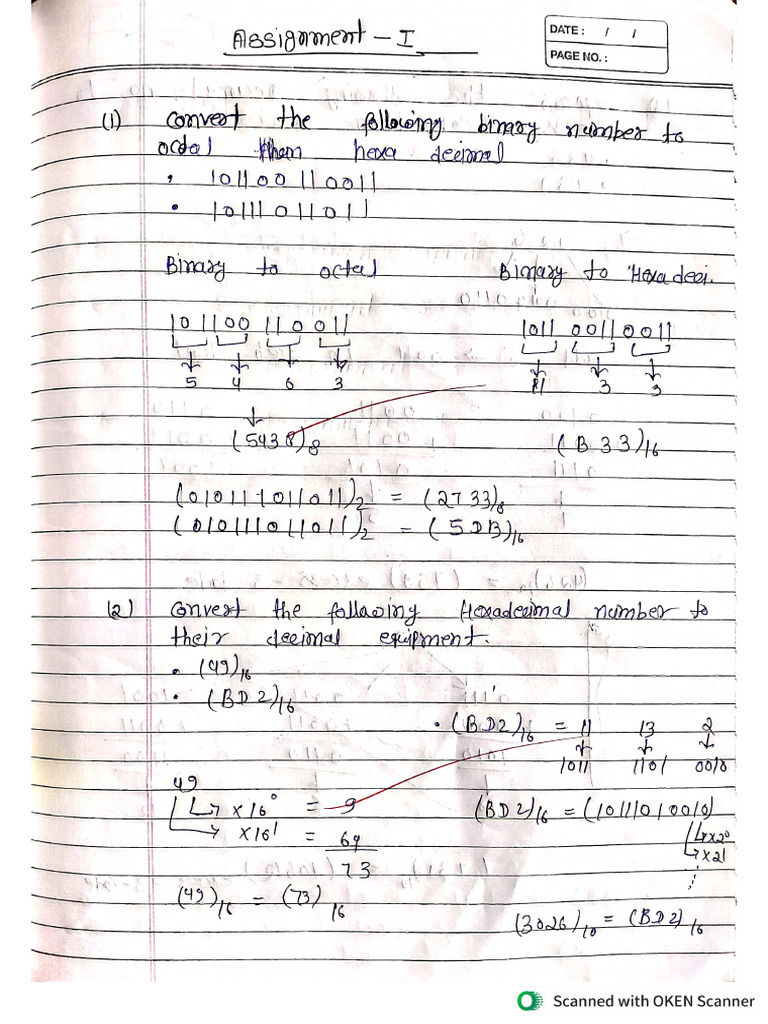 Assignment - I
DATE : / /
PAGE NO. :
(1) Convert the following binary number to
octal then hexa decimal
• 101100110011
• 10111011011
Binary to octal
Binary to Hexadeci.
101100110011
5 4 6 3
(5438)8
101100110011
11 3 3
(B33)16
(010111011011)2 = (2733)8
(010111011011)2 = (5DB)16
(2) Convert the following Hexadecimal number to
their decimal equipment.
• (49)16
• (BD2)16
49
x16⁰ = 9
x16¹ = 64
73
(49)16 = (73)16
• (BD2)16 = 11 13 2
1011 1101 0010
(BD2)16 = (101111010010)
x2⁰
x21
(3026)10 = (BD2)16
Scanned with OKEN Scanner